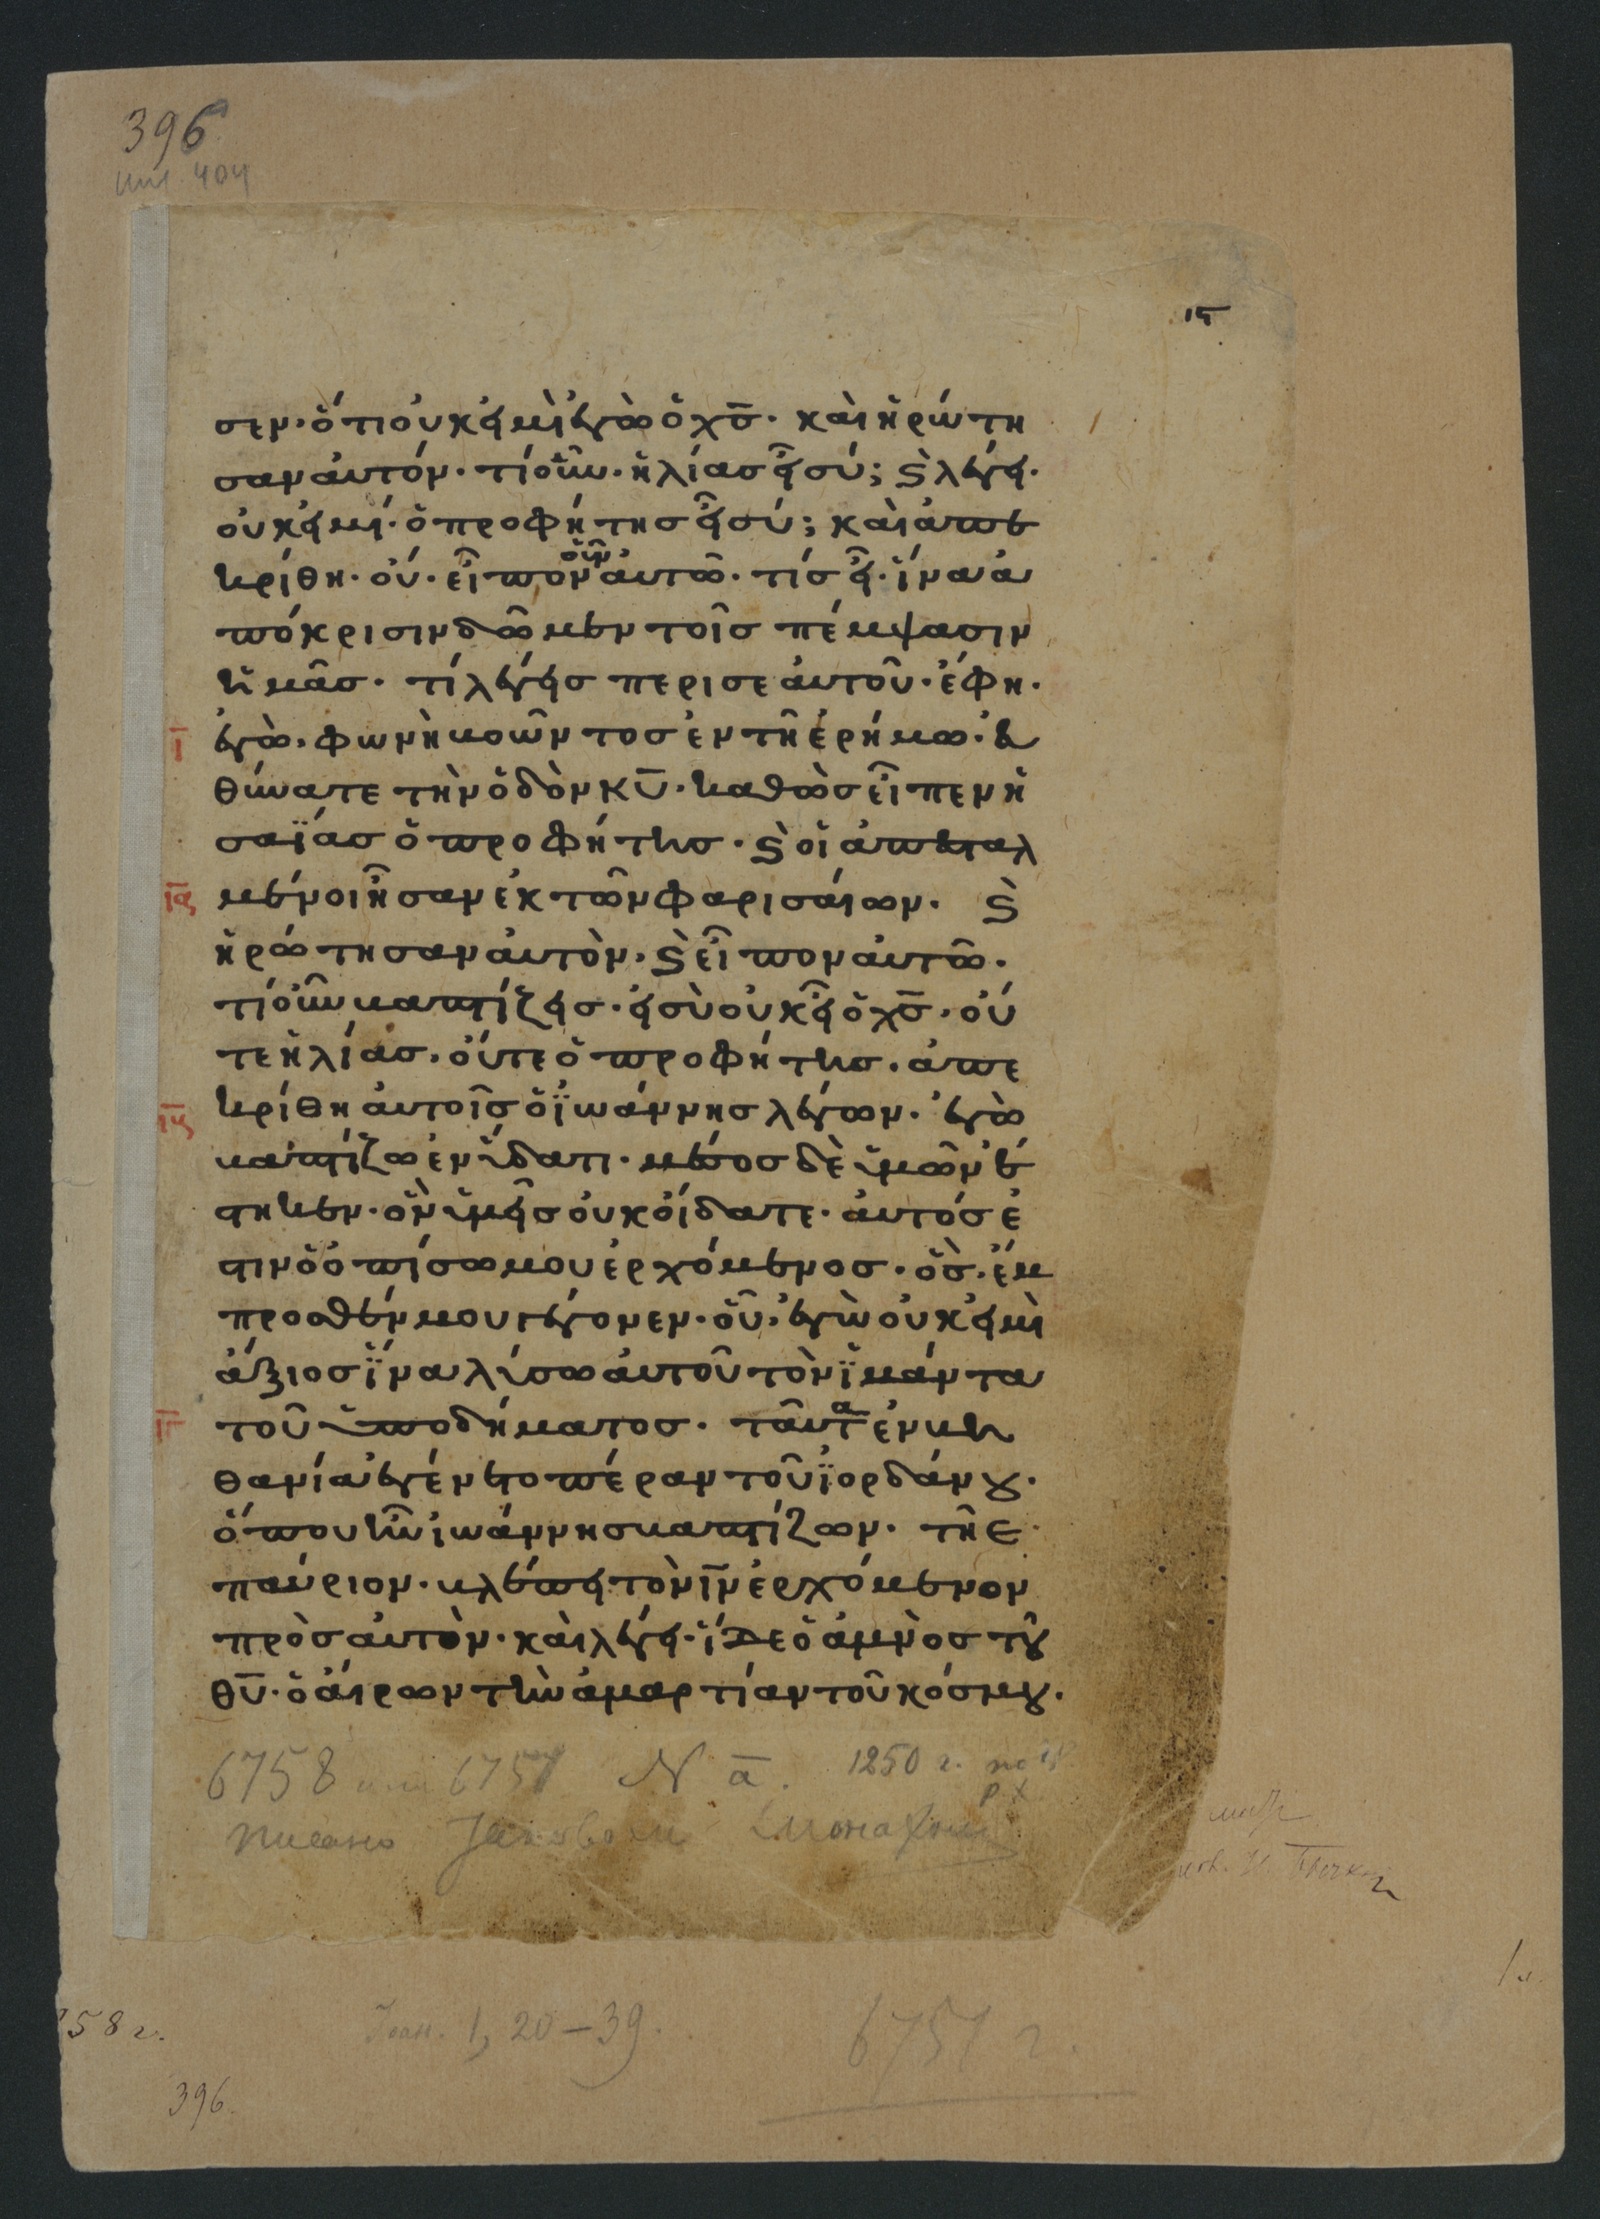 396
404
ις
σεν· ὅτι οὐκ εἰμὶ ἐγὼ ὁ χς̅· καὶ ἠρώτη
σαν αὐτόν· τί οὖν· ἠλίας εἶ σύ; ϗ λέγει·
οὐκ εἰμί· ὁ προφήτης εἶ σύ; καὶ ἀπε
κρίθη· οὔ· εἶπον οὖν αὐτῶ· τίς εἶ· ἵνα ἀ
πόκρισιν δῶμεν τοῖς πέμψασιν
ἡμᾶς· τί λέγεις περι σεαυτοῦ· ἔφη·
ι̅ ἐγὼ· φωνὴ βοῶντος ἐν τῆ ἐρήμω· εὐ
θύνατε τὴν ὁδὸν κυ̅· καθὼς εἶπεν ἡ
σαΐας ὁ προφήτης· ϗ οἱ ἀπεσταλ
ια̅ μένοι ἦσαν ἐκ τῶν φαρισαίων· ϗ
ἠρώτησαν αὐτὸν· ϗ εἶπον αὐτῶ·
τί οὖν βαπτίζεις· εἰ σὺ οὐκ εἶ ὁ χς̅· οὔ
τε ἠλίας· οὔτε ὁ προφήτης· ἀπε
ιβ̅ κρίθη αὐτοῖς ὁ ϊωάννης λέγων· ἐγὼ
βαπτίζω ἐν ὕδατι· μέσος δὲ ὑμῶν ἕ
στηκεν· ὃν ὑμεῖς οὐκ οἴδατε· αὐτός ἐ
στιν ὁ ὀπίσω μου ἐρχόμενος· ὃς· ἔμ
προσθέν μου γέγονεν· οὗ· ἐγὼ οὐκ εἰμὶ
ἄξιος ἵνα λύσω αὐτοῦ τὸν ϊμάντα
ιγ̅ τοῦ ὑποδήματος· ταῦτα ἐν βη
θανία ἐγένετο πέραν τοῦ ϊορδάνου·
ὅπου ἦν ἰωάννης βαπτίζων· τῆ ε
παύριον· βλέπει τὸν ιν̅ ἐρχόμενον
πρὸς αὐτὸν· καὶ λέγει· ἴδε ὁ ἀμνὸς τοῦ
θυ̅· ὁ αἴρων τὴν ἁμαρτίαν τοῦ κόσμου·
6758 или 6757 N α̅. 1250 г. по
р х
писано Іаковом Монахом
И. Бычков
1 л.
58 г.
Іоан. 1, 20-39.
6757 г.
396.